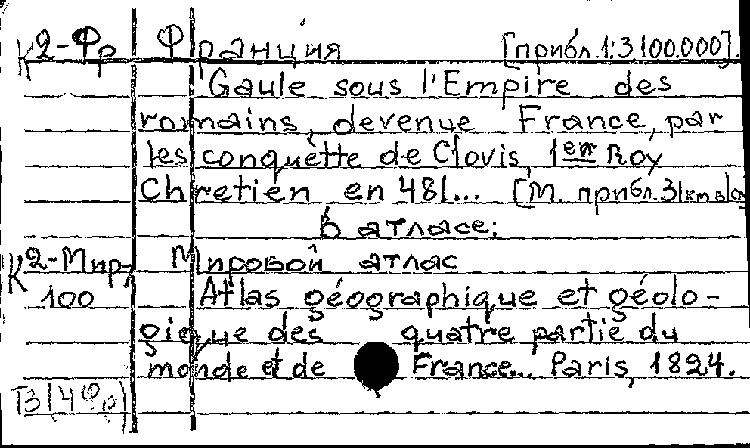 К2-Фр Франция [прибл. 1:3100.000].
Gaule sous l'Empire des
romains, devenue France, par
les conquètte de Clovis, 1er Roy
Chretien en 481... [М. прибл. 31км в 1см
В атласе:
К2-Мир, Мировой атлас
100 Atlas géographique et géolo-
gique des quatre partie du
monde et de France... Paris, 1824.